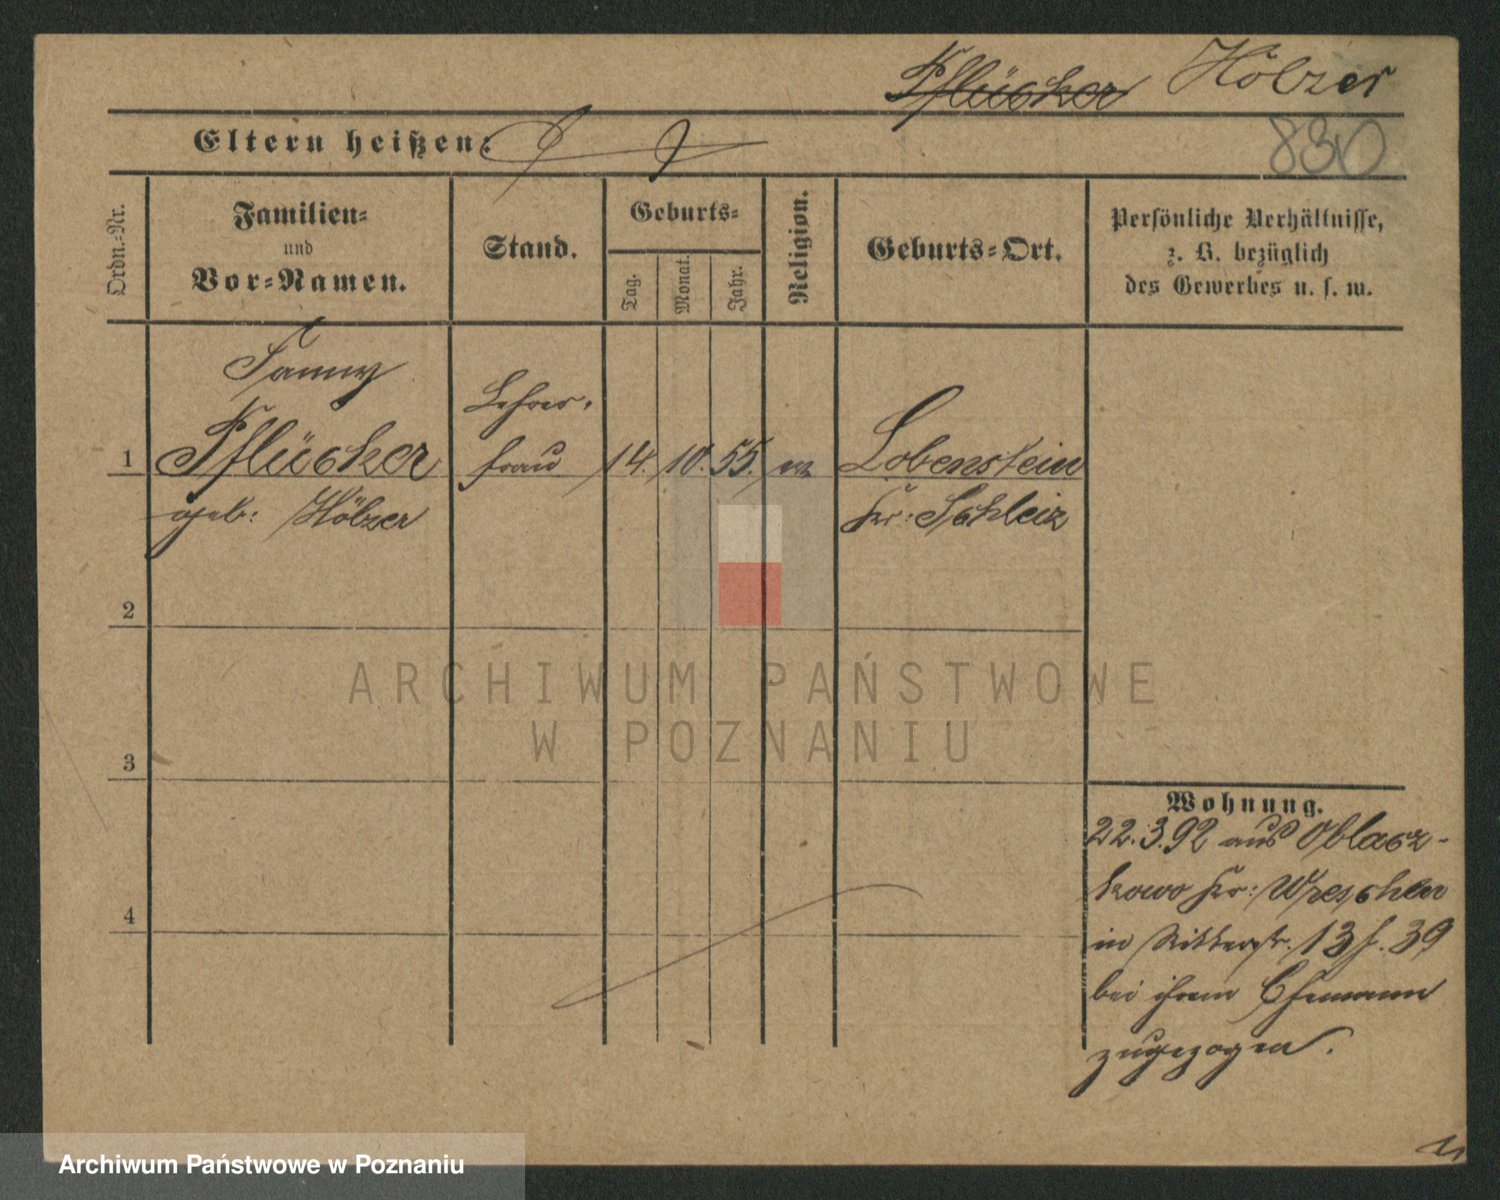 Pflücker Hölzer
Eltern heißen:
830
Ordn.=Nr.
Familien=
und
Vor=Namen.
Stand.
Geburts=
Tag.
Monat.
Jahr.
Religion.
Geburts=Ort.
Persönliche Verhältnisse,
z. B. bezüglich
des Gewerbes u. s. w.
Fanny
Lehrer=
1 Pflücker frau 14. 10. 55. ev Lobenstein
geb: Hölzer Kr: Schleiz
2
ARCHIWUM PAŃSTWOWE
W POZNANIU
3
Wohnung.
22.3.92 aus Oblacz-
kowo Kr: Wreschen
4
in Ritterstr. 13 f. 39
bei ihrem Ehemann
zugezogen.
Archiwum Państwowe w Poznaniu